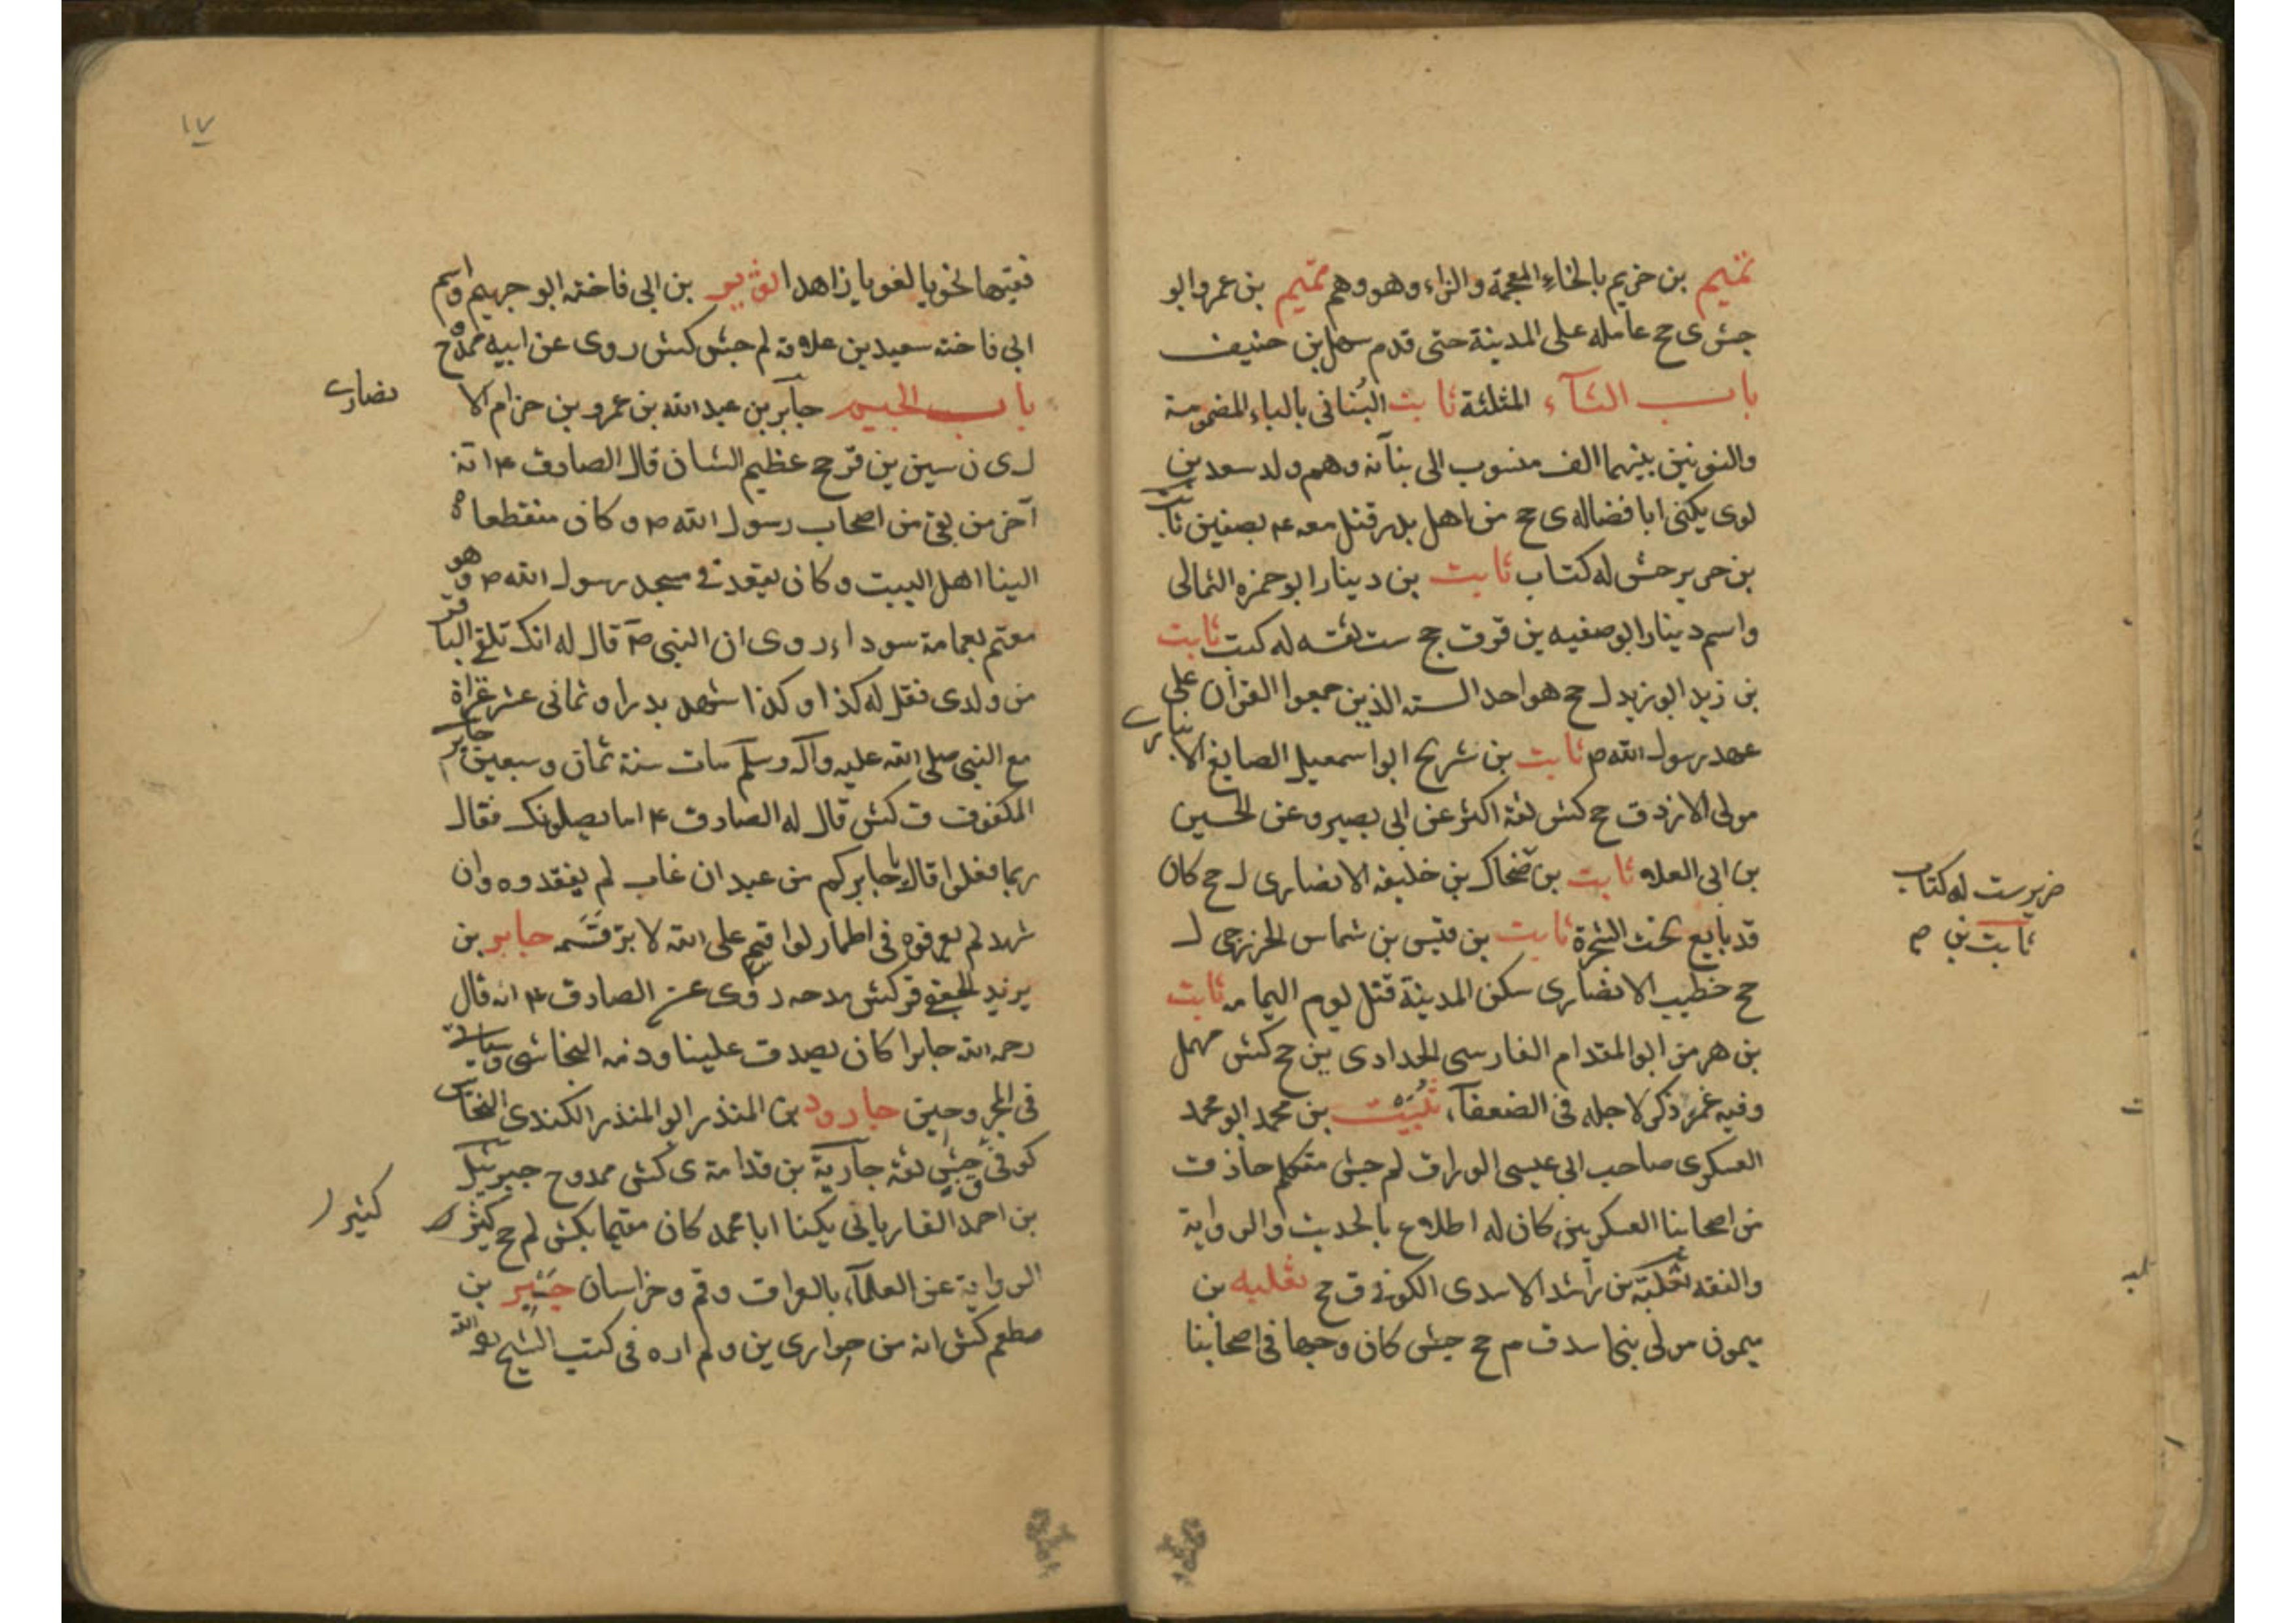 تميم بن خزيم بالخاء المعجمة والزاء وهو وهم تميم بن عمرو ابو
حبش ى حج عامله على المدينة حتى قدم سهل بن حنيف
باب الثآء المثلثة ثابت البُنانى بالباء المضمومة
والنونين بينهما الف منسوب الى بنآنه وهم ولد سعد بن
لوى يكنى ابا فضاله ى حج من اهل بدر قتل معه ع بصفين ثابت
بن جرير جش له كتاب ثابت بن دينار ابو حمزه الثمالى
واسم دينار ابو صفيه ين قرق جج ست ثقه له كتب ثابت
بن زيد ابو زيد ل حج هو احد السته الذين جمعوا القرآن على
عهد رسول الله ص ثابت بن شريح ابو اسمعيل الصايغ الانبارى
مولى الازد ق حج كش ثقة اكثر عن ابى بصير وعن الحسين
بن ابى العلاء ثابت بن ضحاك بن خليفه الانصارى ل حج كان
قد بايع تحت الشجرة ثابت بن قيس بن شماس الخزرجى ل
حج خطيب الانصارى سكن المدينة قتل يوم اليمامه ثابت
بن هرمز ابو المقدام الفارسى الحدادى ين حج كش مهمل
وفيه غمز ذكر لاجله فى الضعفآء ثُبيت بن محمد ابو محمد
العسكرى صاحب ابى عيسى الوراق لم جش متكلم حاذق
من اصحابنا العسكريين كان له اطلاع بالحديث والرواية
والفقه ثعلبة بن راشد الاسدى الكوفى ق حج ثعلبه بن
ميمون مولى بنى اسد ق م حج جش كان وجها فى اصحابنا
ضرير ست له كتاب
ثابت بن ص
١٧
فقيها نحويا لغويا زاهدا الثوير بن ابى فاخته ابو جهيم واسم
ابى فاخته سعيد بن علاقه لم جش كش روى عن ابيه ممدوح
باب الجيم جآبر بن عبد الله بن عمرو بن حزام الا
نصارى
ل ى ن سين ين قر حج عظيم الشان قال الصادق ع انه
آخر من بقى من اصحاب رسول الله ص وكان منقطعا
الينا اهل البيت وكان يقعد فى مسجد رسول الله ص وهو
معتم بعمامة سوداء روى ان النبى ص قال له انك تلقى الباقر
من ولدى فقل له كذا وكذا شهد بدرا وثمانى عشر غزاة
مع النبى صلى الله عليه وآله وسلم مات سنة ثمان وسبعين جابر
المكفوف ق كش قال له الصادق ع اما يصلونك فقال
ربما فعلوا قال يا جابر كم من عبد ان غاب لم يفقدوه وان
شهد لم يعرفوه فى اطمار لو اقسم على الله لابر قَسَمه جابر بن
يزيد الجعفى قر كش مدحه روى عن الصادق ع انه قال
رحم الله جابرا كان يصدق علينا وذمه النجاشى وسياتى
فى المجروحين جارود بن المنذر ابو المنذر الكندى النخاس
كوفى ق جش ثقة جآرية بن قدامة ى كش ممدوح جبرئيل
بن احمد الفاريابى يكنا ابا محمد كان مقيما بكش لم حج كثير
كثير ا
الرواية عن العلمآء بالعراق وقم وخراسان جبير بن
مطعم كش انه من حوارى ين ولم اره فى كتب الشيخ